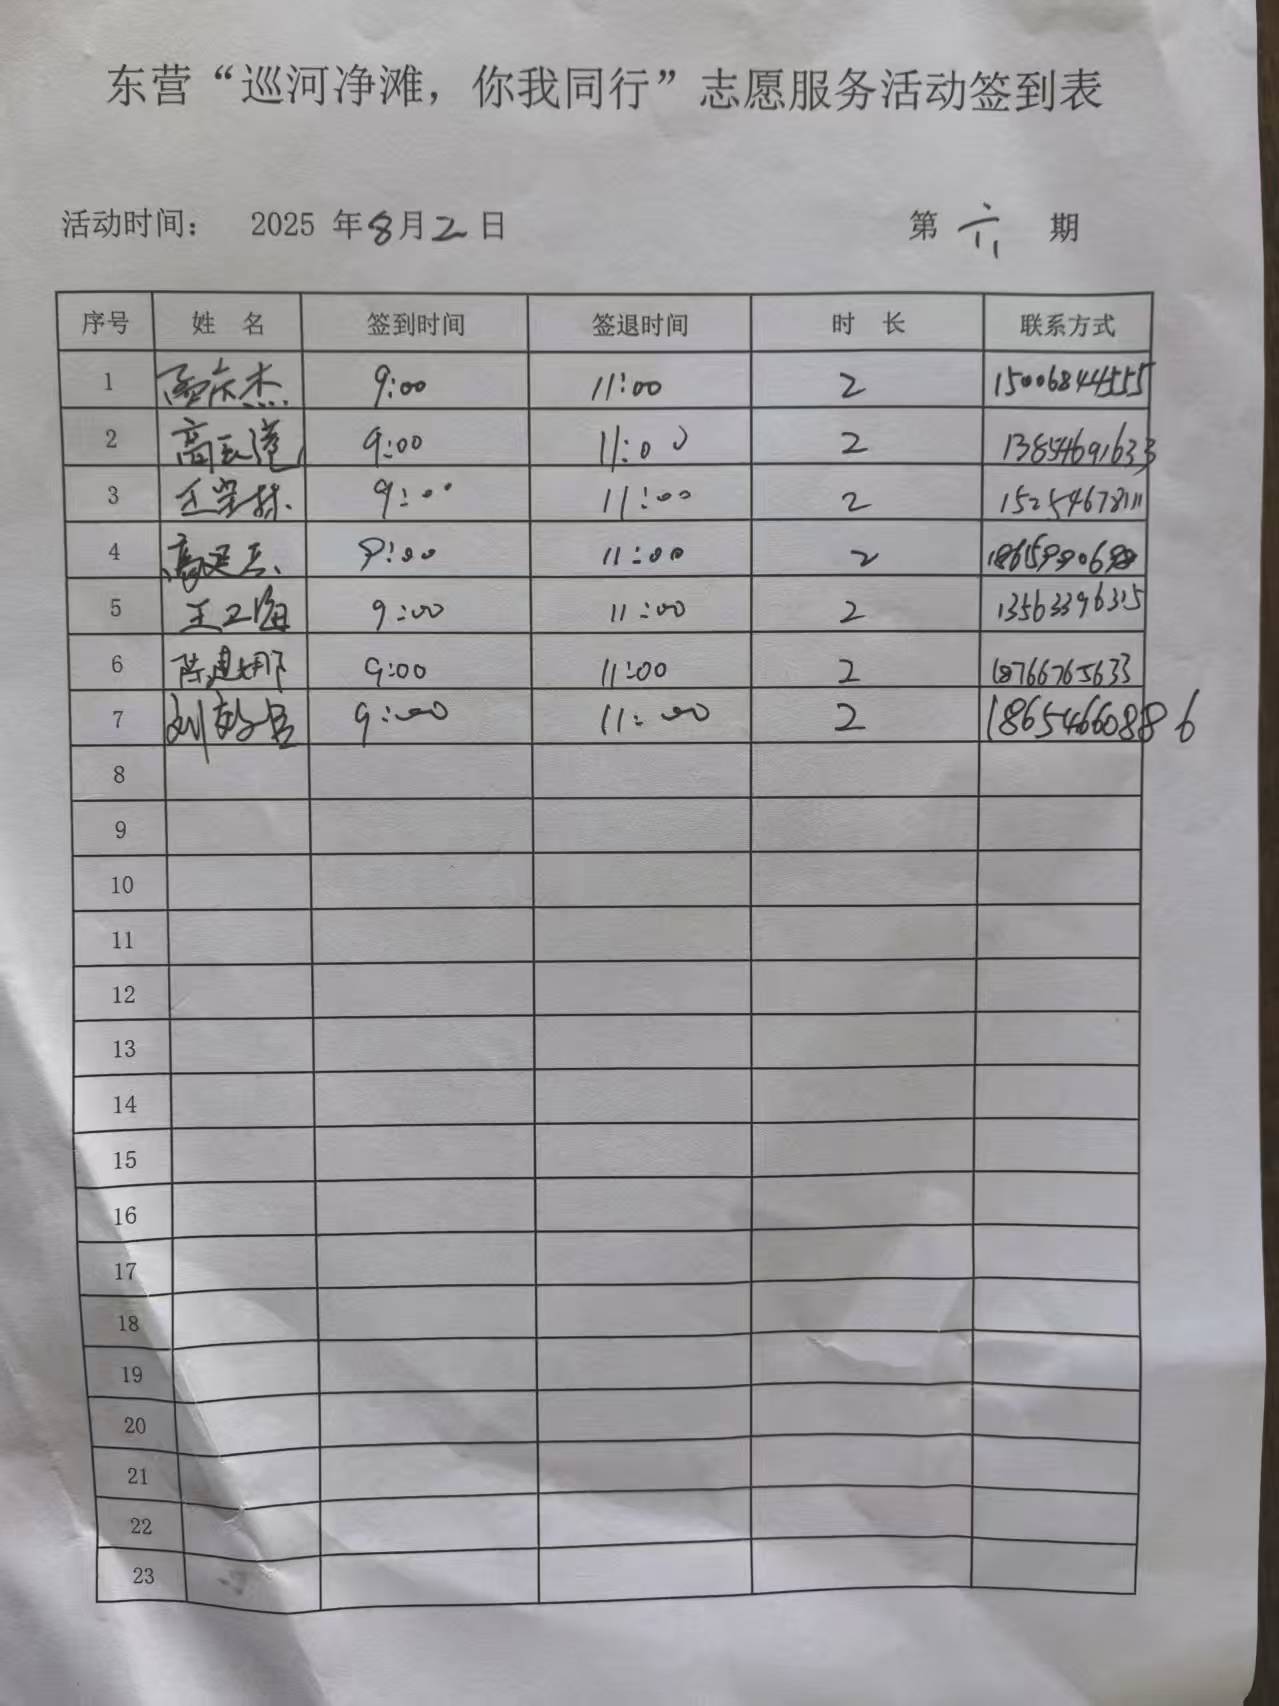 东营“巡河净滩，你我同行”志愿服务活动签到表
活动时间： 2025 年8月2日 第 六 期
序号 姓 名 签到时间 签退时间 时 长 联系方式
1 杰 9:00 11:00 2 15006844555
2 高玉道 9:00 11:00 2 13854691633
3 王 9:00 11:00 2 15254678111
4 高 9:00 11:00 2
5 王卫海 9:00 11:00 2 13563396315
6 陈建娜 9:00 11:00 2 18766765633
7 刘 9:00 11:00 2 18654660886
8
9
10
11
12
13
14
15
16
17
18
19
20
21
22
23